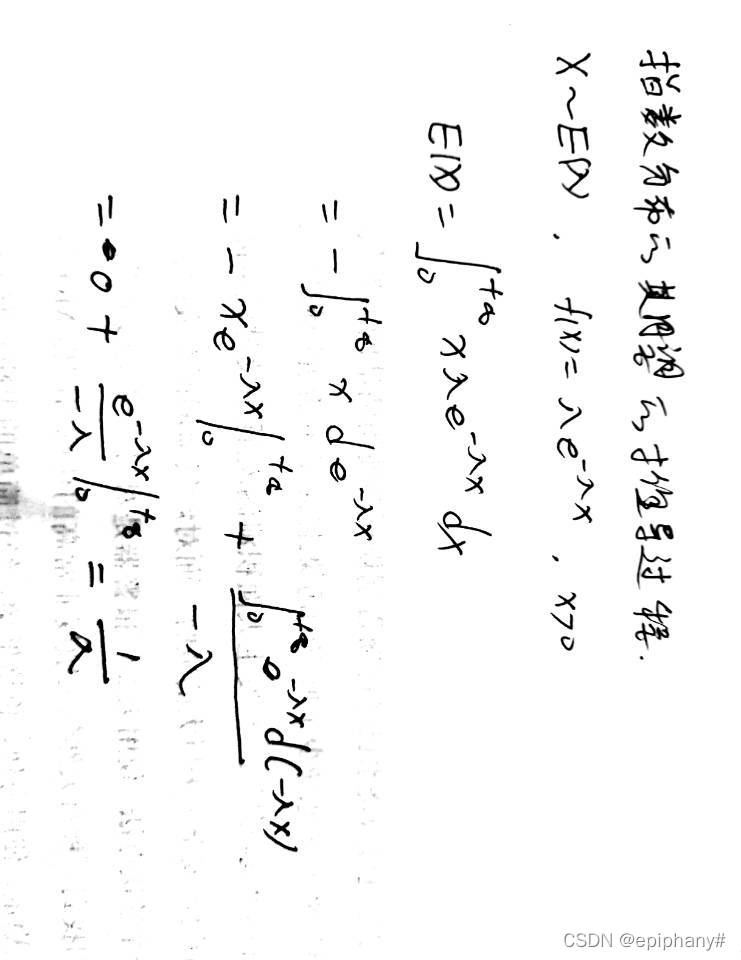 指数分布的期望的推导过程.
X~E(λ) , f(x)=λe^{-λx} , x>0
E(X) = ∫_0^{+∞} xλe^{-λx} dx
= -∫_0^{+∞} x d e^{-λx}
= -xe^{-λx}|_0^{+∞} + \frac{∫_0^{+∞} e^{-λx} d(-λx)}{-λ}
= 0 + \frac{e^{-λx}}{-λ}|_0^{+∞} = \frac{1}{λ}
CSDN @epiphany#